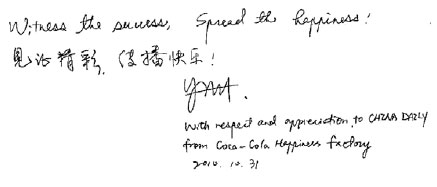 Witness the success, Spread the happiness!
见证精彩,传播快乐!
With respect and appreciation, to CHINA DAILY
from Coca-Cola Happiness factory
2010. 10. 31